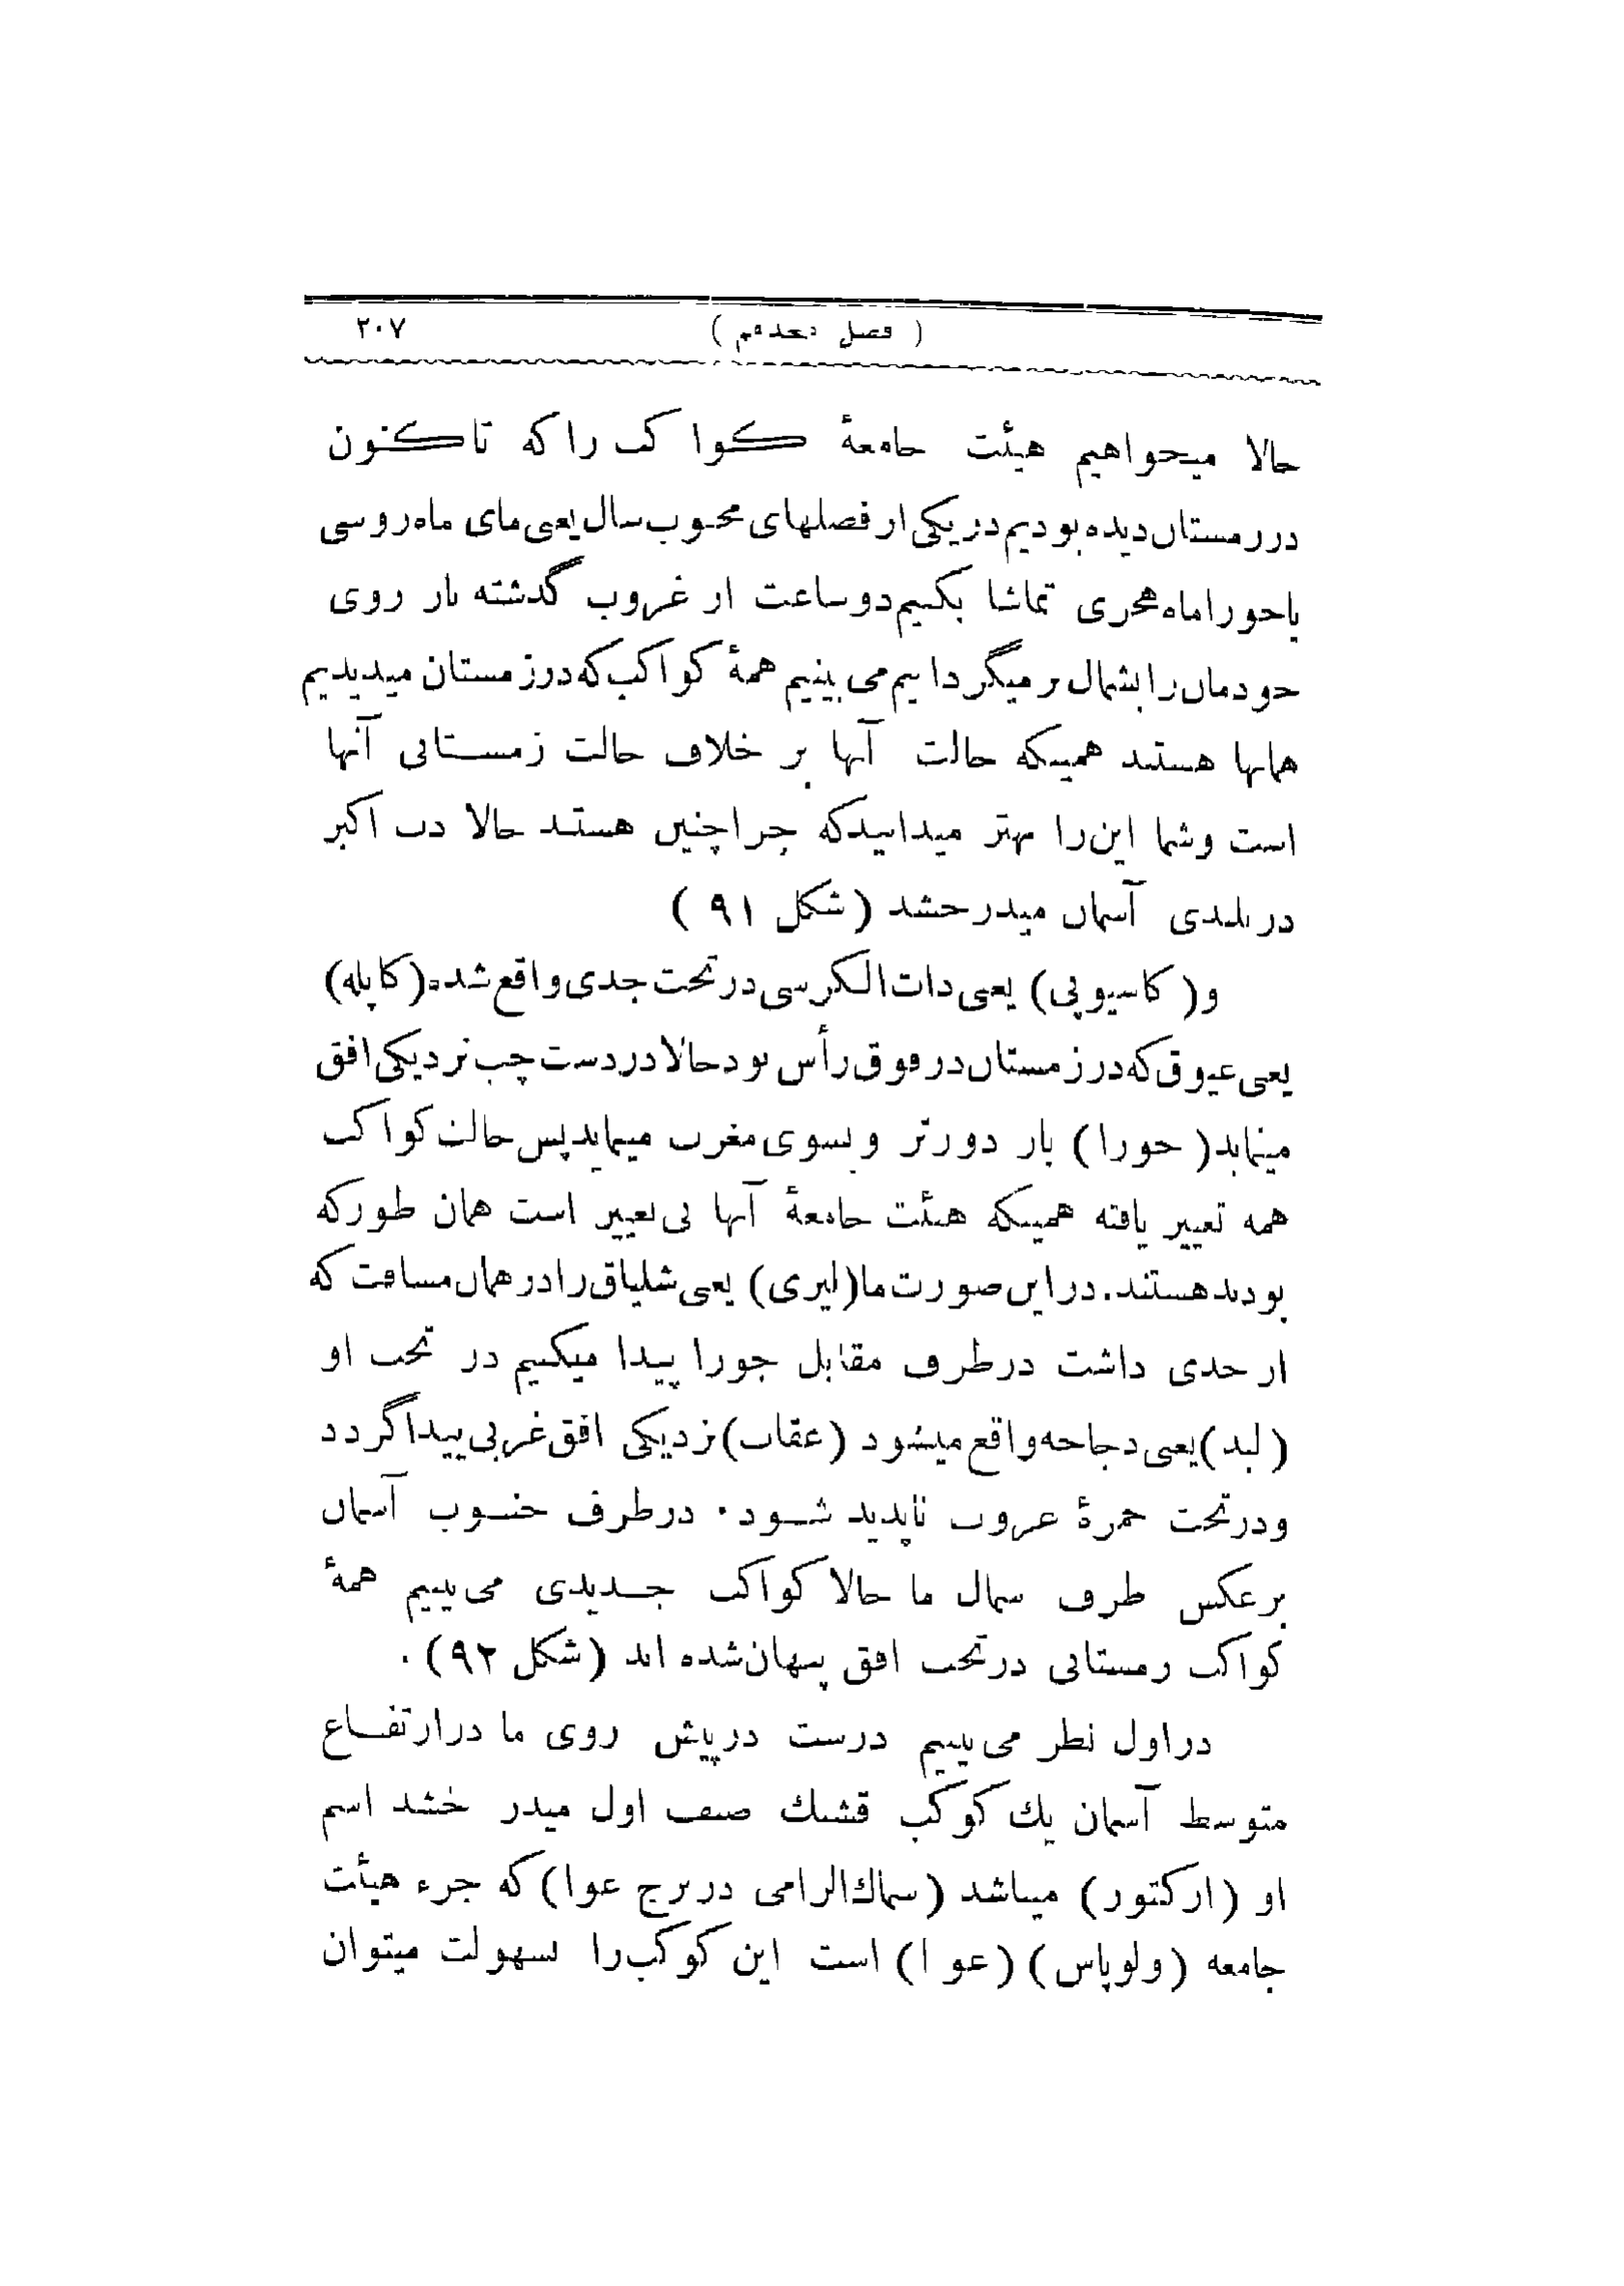 ( فصل نجدهم ) ۲۰۷
حالا میخواهیم هیئت جامعهٔ کواکب را که تاکنون
در زمستان دیده بودیم در یکی از فصلهای محبوب سال یعنی مای ماه روسی
یا جوزا ماه هجری تماشا بکنیم دو ساعت از غروب گذشته باز روی
خودمان را بشمال بر میگردانیم می بینیم همهٔ کواکب که در زمستان میدیدیم
همانها هستند همینکه حالت آنها بر خلاف حالت زمستانی آنها
است و شما این را بهتر میدانید که چرا چنین هستند حالا دب اکبر
در بلندی آسمان میدرخشد ( شکل ۹۱ )
و ( کاسیوپی ) یعنی ذات الکرسی در تحت جدی واقع شده ( کاپله )
یعنی عیوق که در زمستان در فوق رأس بود حالا در دست چپ نزدیکی افق
مینماید ( جوزا ) باز دورتر و بسوی مغرب میماید پس حالت کواکب
همه تغییر یافته همینکه هیئت جامعهٔ آنها بی تغییر است همان طور که
بودند هستند . در این صورت ما ( لیری ) یعنی شلیاق را در همان مسافت که
از جدی داشت در طرف مقابل جوزا پیدا میکنیم در تحت او
( لبد ) یعنی دجاجه واقع میشود ( عقاب ) نزدیکی افق غربی پیدا گردد
و در تحت حمرهٔ غروب ناپدید شود . در طرف جنوب آسمان
بر عکس طرف شمال ما حالا کواکب جدیدی می بینیم همهٔ
کواکب زمستانی در تحت افق پنهان شده اند ( شکل ۹۲ ) .
در اول نظر می بینیم درست در پیش روی ما در ارتفاع
متوسط آسمان یك کوکب قشنك صنف اول میدرخشد اسم
او ( ارکتور ) میباشد ( سماك الرامی در برج عوا ) که جزء هیئت
جامعه ( ولوپاس ) ( عوا ) است این کوکب را بسهولت میتوان